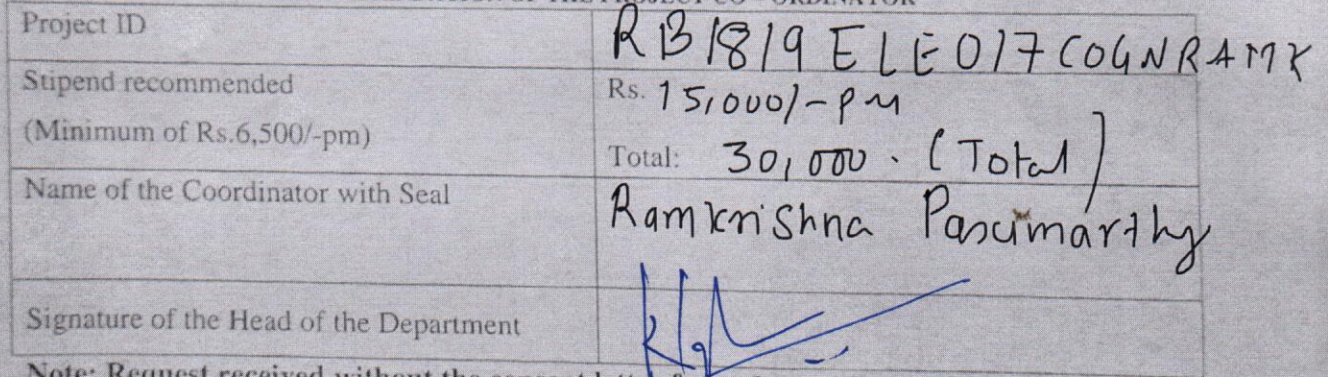 OF THE PROJECT CO - ORDINATOR
Project ID RB1819ELE017COGNRAMK
Stipend recommended Rs. 15,000/-pm
(Minimum of Rs.6,500/-pm)
Total: 30,000. (Total)
Name of the Coordinator with Seal Ramkrishna Pasumarthy
Signature of the Head of the Department
Note: Request received without the